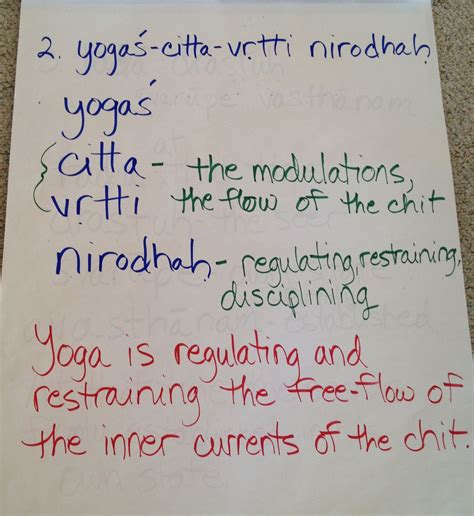 2. yogaś-citta-vṛtti nirodhaḥ
yogaś
citta - the modulations,
vṛtti the flow of the chit
nirodhaḥ - regulating, restraining,
disciplining
Yoga is regulating and
restraining the free-flow of
the inner currents of the chit.